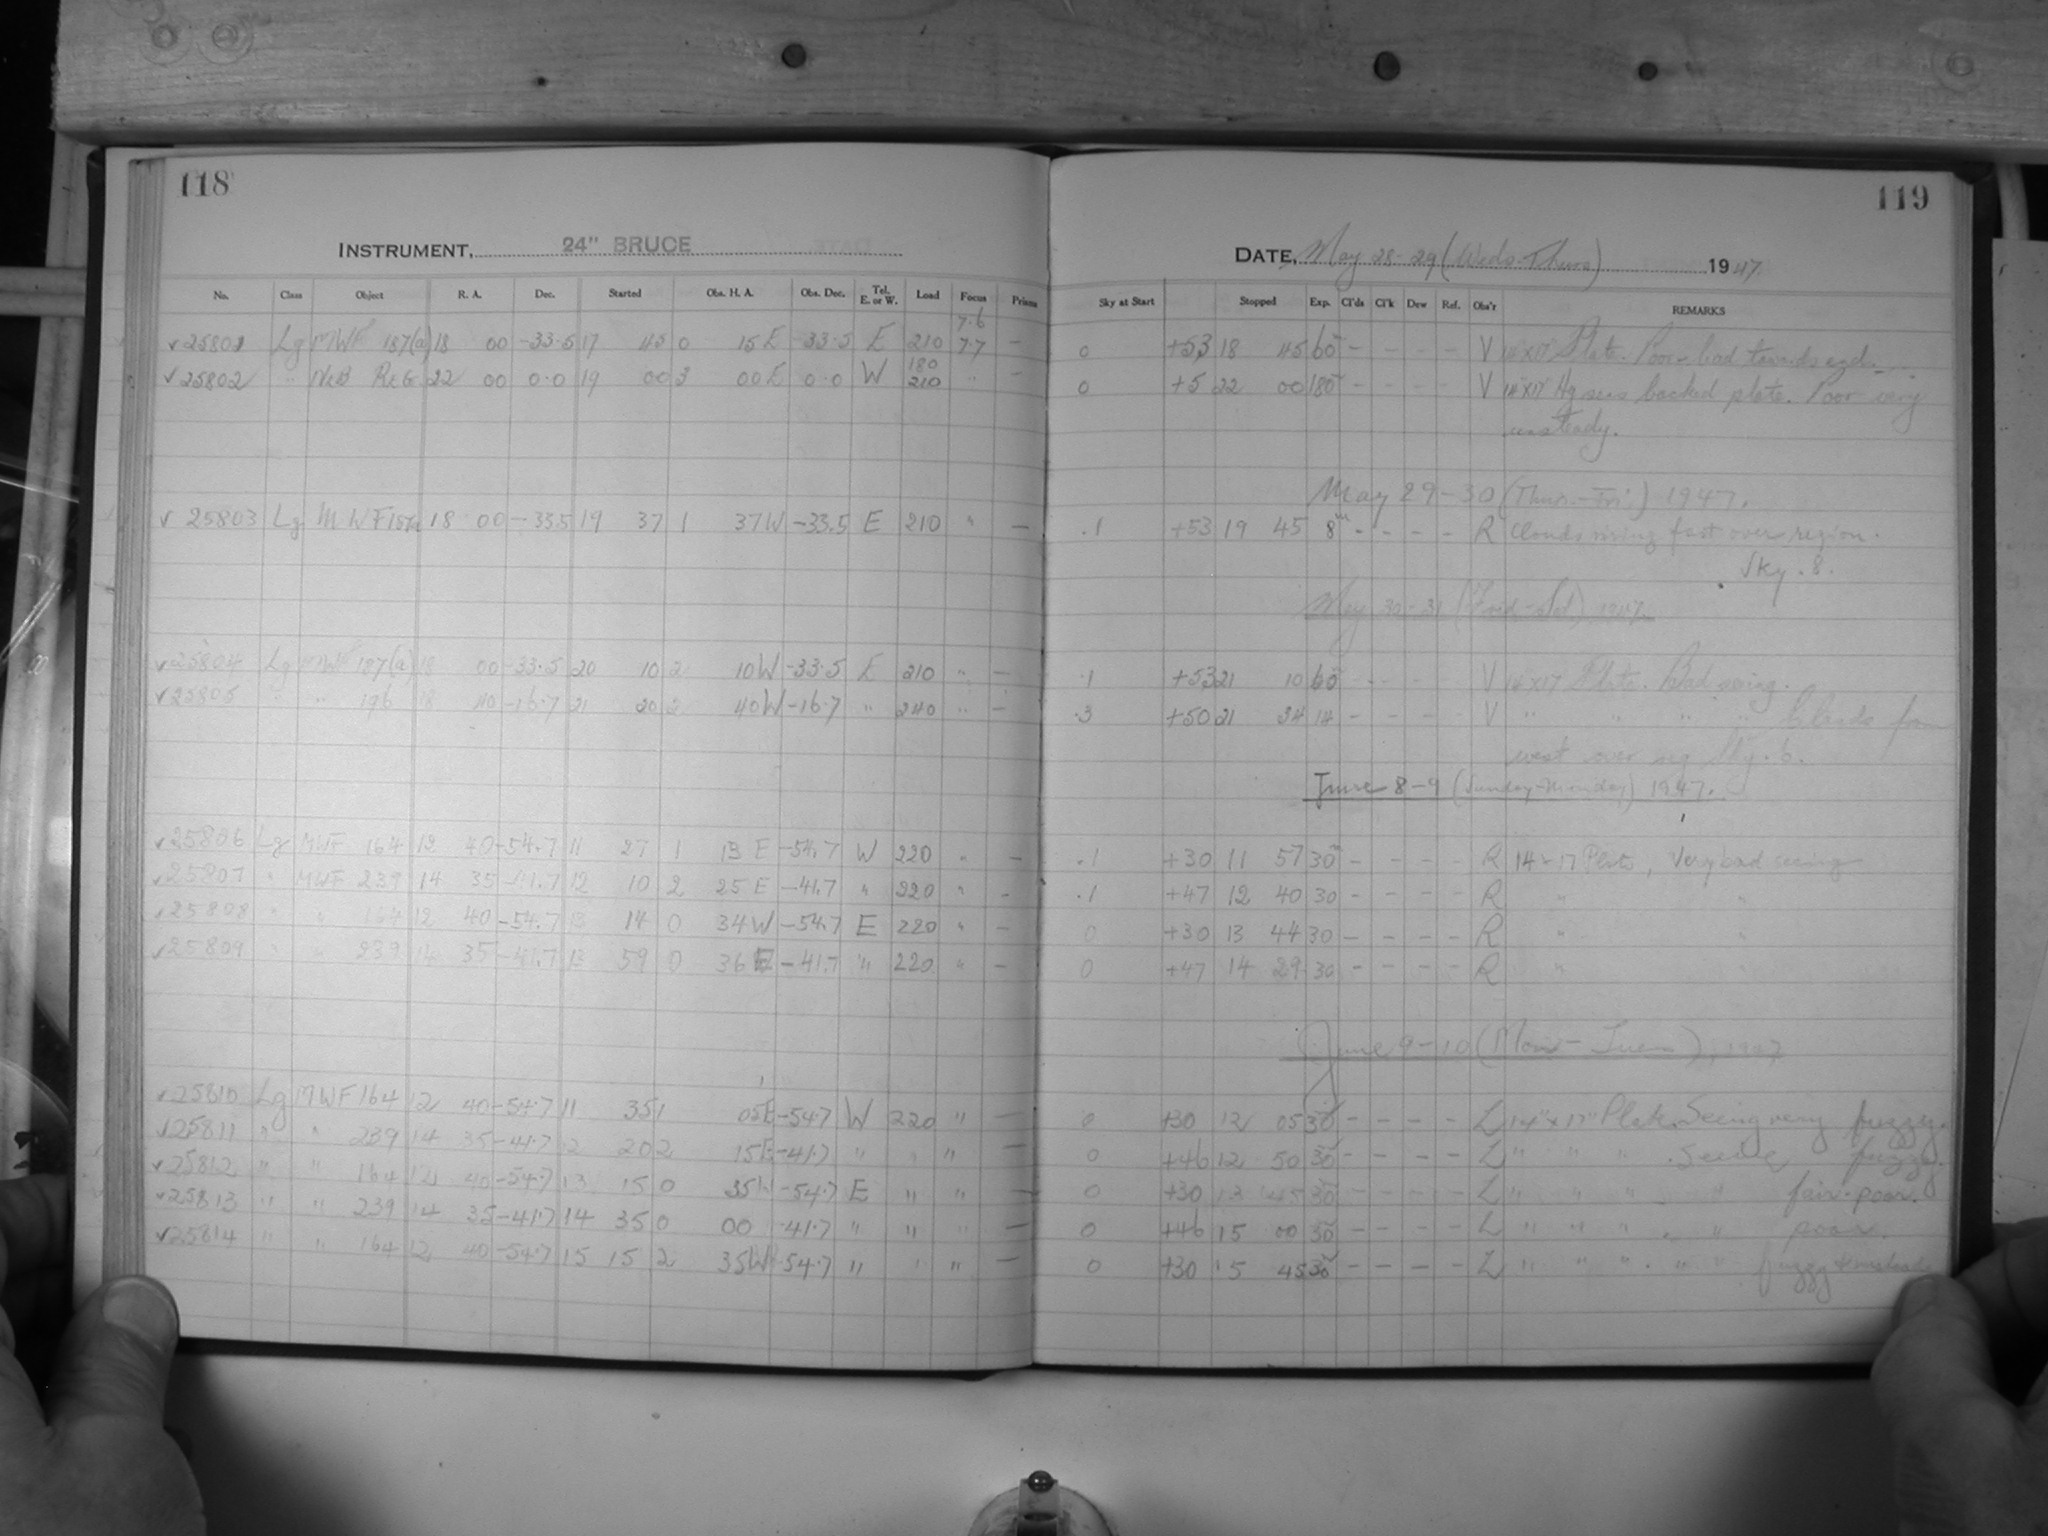 118
INSTRUMENT, 24" BRUCE
No. Class Object R. A. Dec. Started Obs. H. A. Obs. Dec. Tel. E. or W. Load Focus Prisms
7.6
√25801 Lg MWF 187(a) 18 00 -33.5 17 45 0 15 E -33.5 E 210 7.7 -
180
√25802 " NEB REG 22 00 0.0 19 00 3 00 E 0.0 W 210 " -
√ 25803 Lg MWF187a 18 00 -33.5 19 37 1 37 W -33.5 E 210 " -
√25804 Lg MWF 187(a) 18 00 -33.5 20 10 2 10 W -33.5 E 210 " -
√25805 " " 196 18 40 -16.7 21 20 2 40 W -16.7 " 240 " -
√25806 Lg MWF 164 12 40 -54.7 11 27 1 13 E -54.7 W 220 " -
√25807 " MWF 239 14 35 -41.7 12 10 2 25 E -41.7 " 220 " -
√25808 " " 164 12 40 -54.7 13 14 0 34 W -54.7 E 220 " -
√25809 " " 239 14 35 -41.7 13 59 0 36 E -41.7 " 220 " -
√25810 Lg MWF 164 12 40 -54.7 11 35 1 05 E -54.7 W 220 " -
√25811 " " 239 14 35 -41.7 12 20 2 15 E -41.7 " " "
√25812 " " 164 12 40 -54.7 13 15 0 35 W -54.7 E " " -
√25813 " " 239 14 35 -41.7 14 35 0 00 -41.7 " " " -
√25814 " " 164 12 40 -54.7 15 15 2 35 W -54.7 " " " -
119
DATE, May 28-29 (Weds-Thurs) 1947
Sky at Start Stopped Exp. Cl'ds Cl'k Dew Ref. Obs'r REMARKS
0 +53 18 45 60 - - - - V 14"x17" Plate. Poor - bad towards end.
0 +5 22 00 180 - - - - V 14"x17" Hg sens backed plate. Poor very
unsteady.
May 29-30 (Thur.-Fri.) 1947.
.1 +53 19 45 8m - - - - R Clouds rising fast over region.
Sky .8.
May 30-31 (Frid-Sat) 1947.
.1 +53 21 10 60 - - - - V 14"x17" Plate. Bad seeing.
.3 +50 21 34 14 - - - - V " " " " Clouds from
west over reg Sky .6.
June 8-9 (Sunday-Monday) 1947.
.1 +30 11 57 30m - - - - R 14x17 Plate, Very bad seeing
.1 +47 12 40 30 - - - - R " "
0 +30 13 44 30 - - - - R " "
0 +47 14 29 30 - - - - R " "
June 9-10 (Mon-Tues), 1947
0 +30 12 05 30 - - - - L 14"x17" Plate. Seeing very fuzzy.
0 +46 12 50 30 - - - - L " " " . Seeing fuzzy.
0 +30 13 45 30 - - - - L " " " " fair-poor.
0 +46 15 00 30 - - - - L " " " . " poor.
0 +30 15 45 30 - - - - L " " " . " " fuzzy &